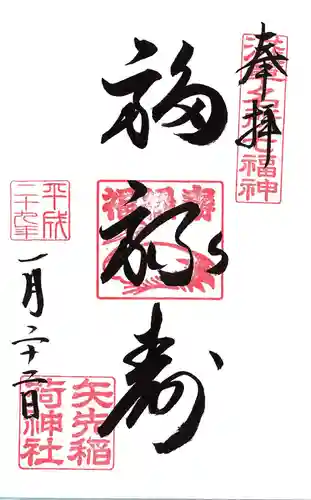 奉拝
浅草名所七福神
福禄寿
福禄壽
平成
二十九年
一月二十二日
矢先稲
荷神社